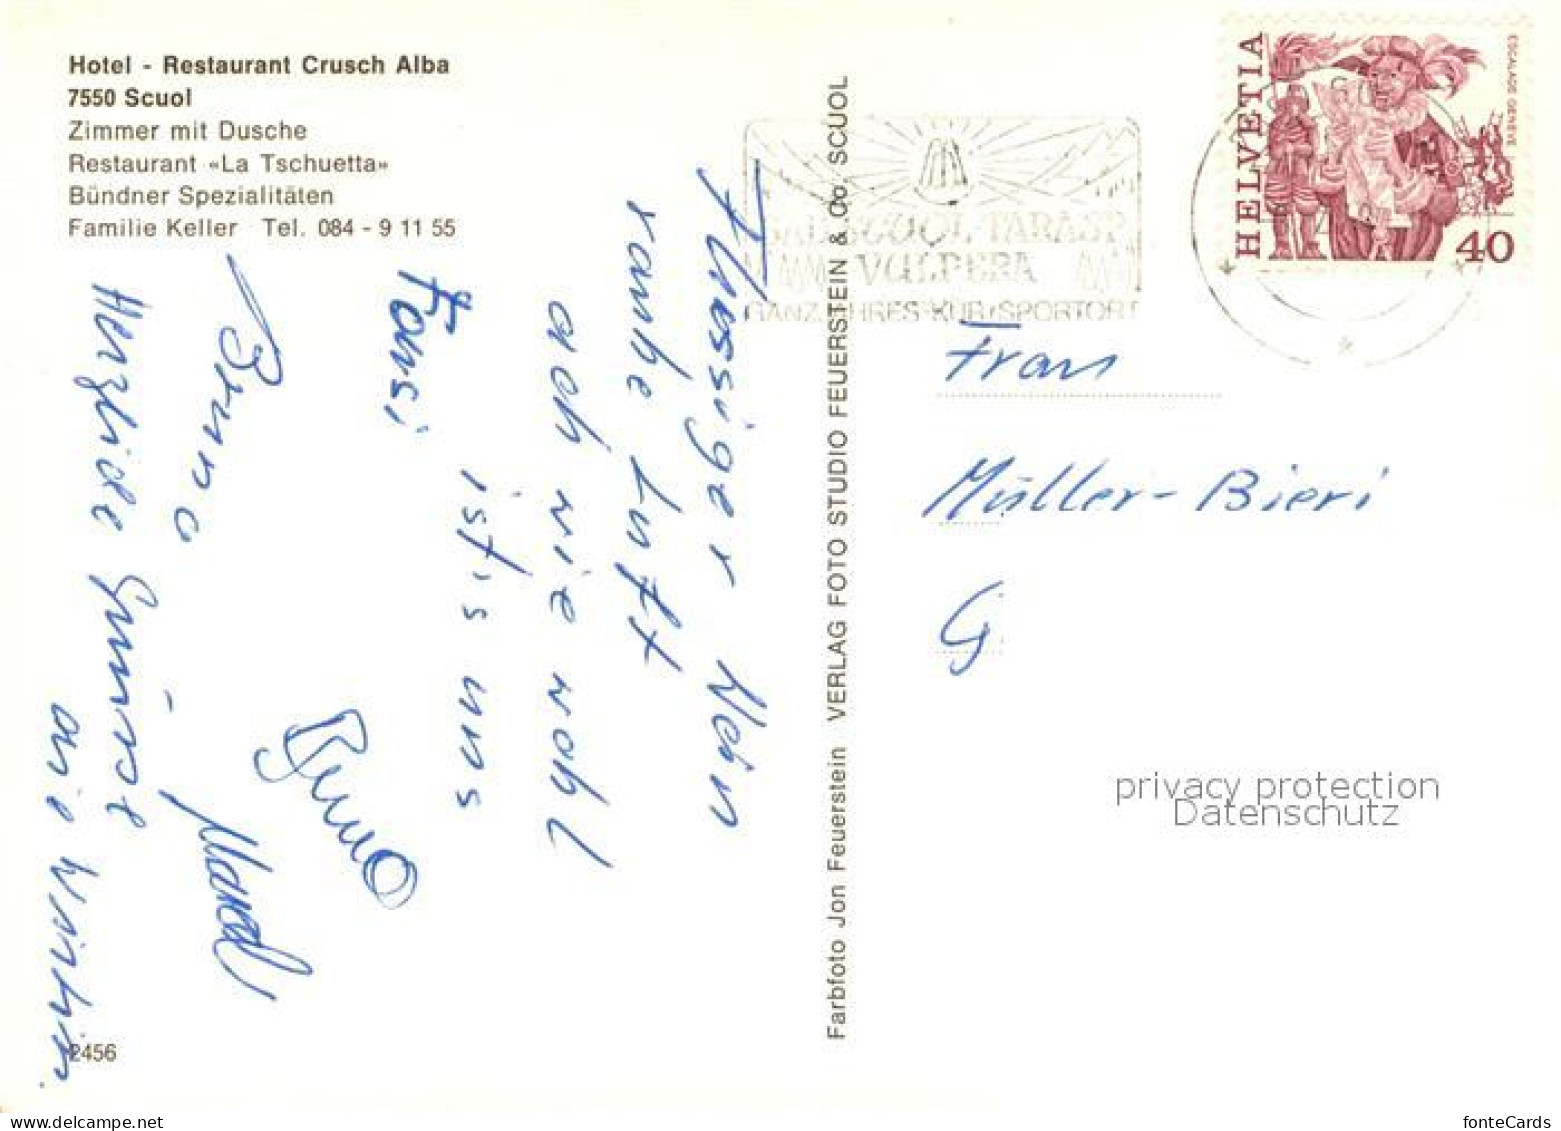 Hotel - Restaurant Crusch Alba
7550 Scuol
Zimmer mit Dusche
Restaurant «La Tschuetta»
Bündner Spezialitäten
Familie Keller Tel. 084 - 9 11 55
Flüssiger Wein
rauhe Luft
ach wie wohl
ist's uns
Fausi
Bruno
Bruno
Marcel
Herzliche Grüsse
die Wirtin.
2456
Farbfoto Jon Feuerstein VERLAG FOTO STUDIO FEUERSTEIN & Co. SCUOL
BAD SCUOL-TARASP
VULPERA
GANZJAHRES-KUR+SPORTORT
HELVETIA
ESCALADE GENÈVE
40
Frau
Müller-Bieri
G
privacy protection
Datenschutz
fonteCards